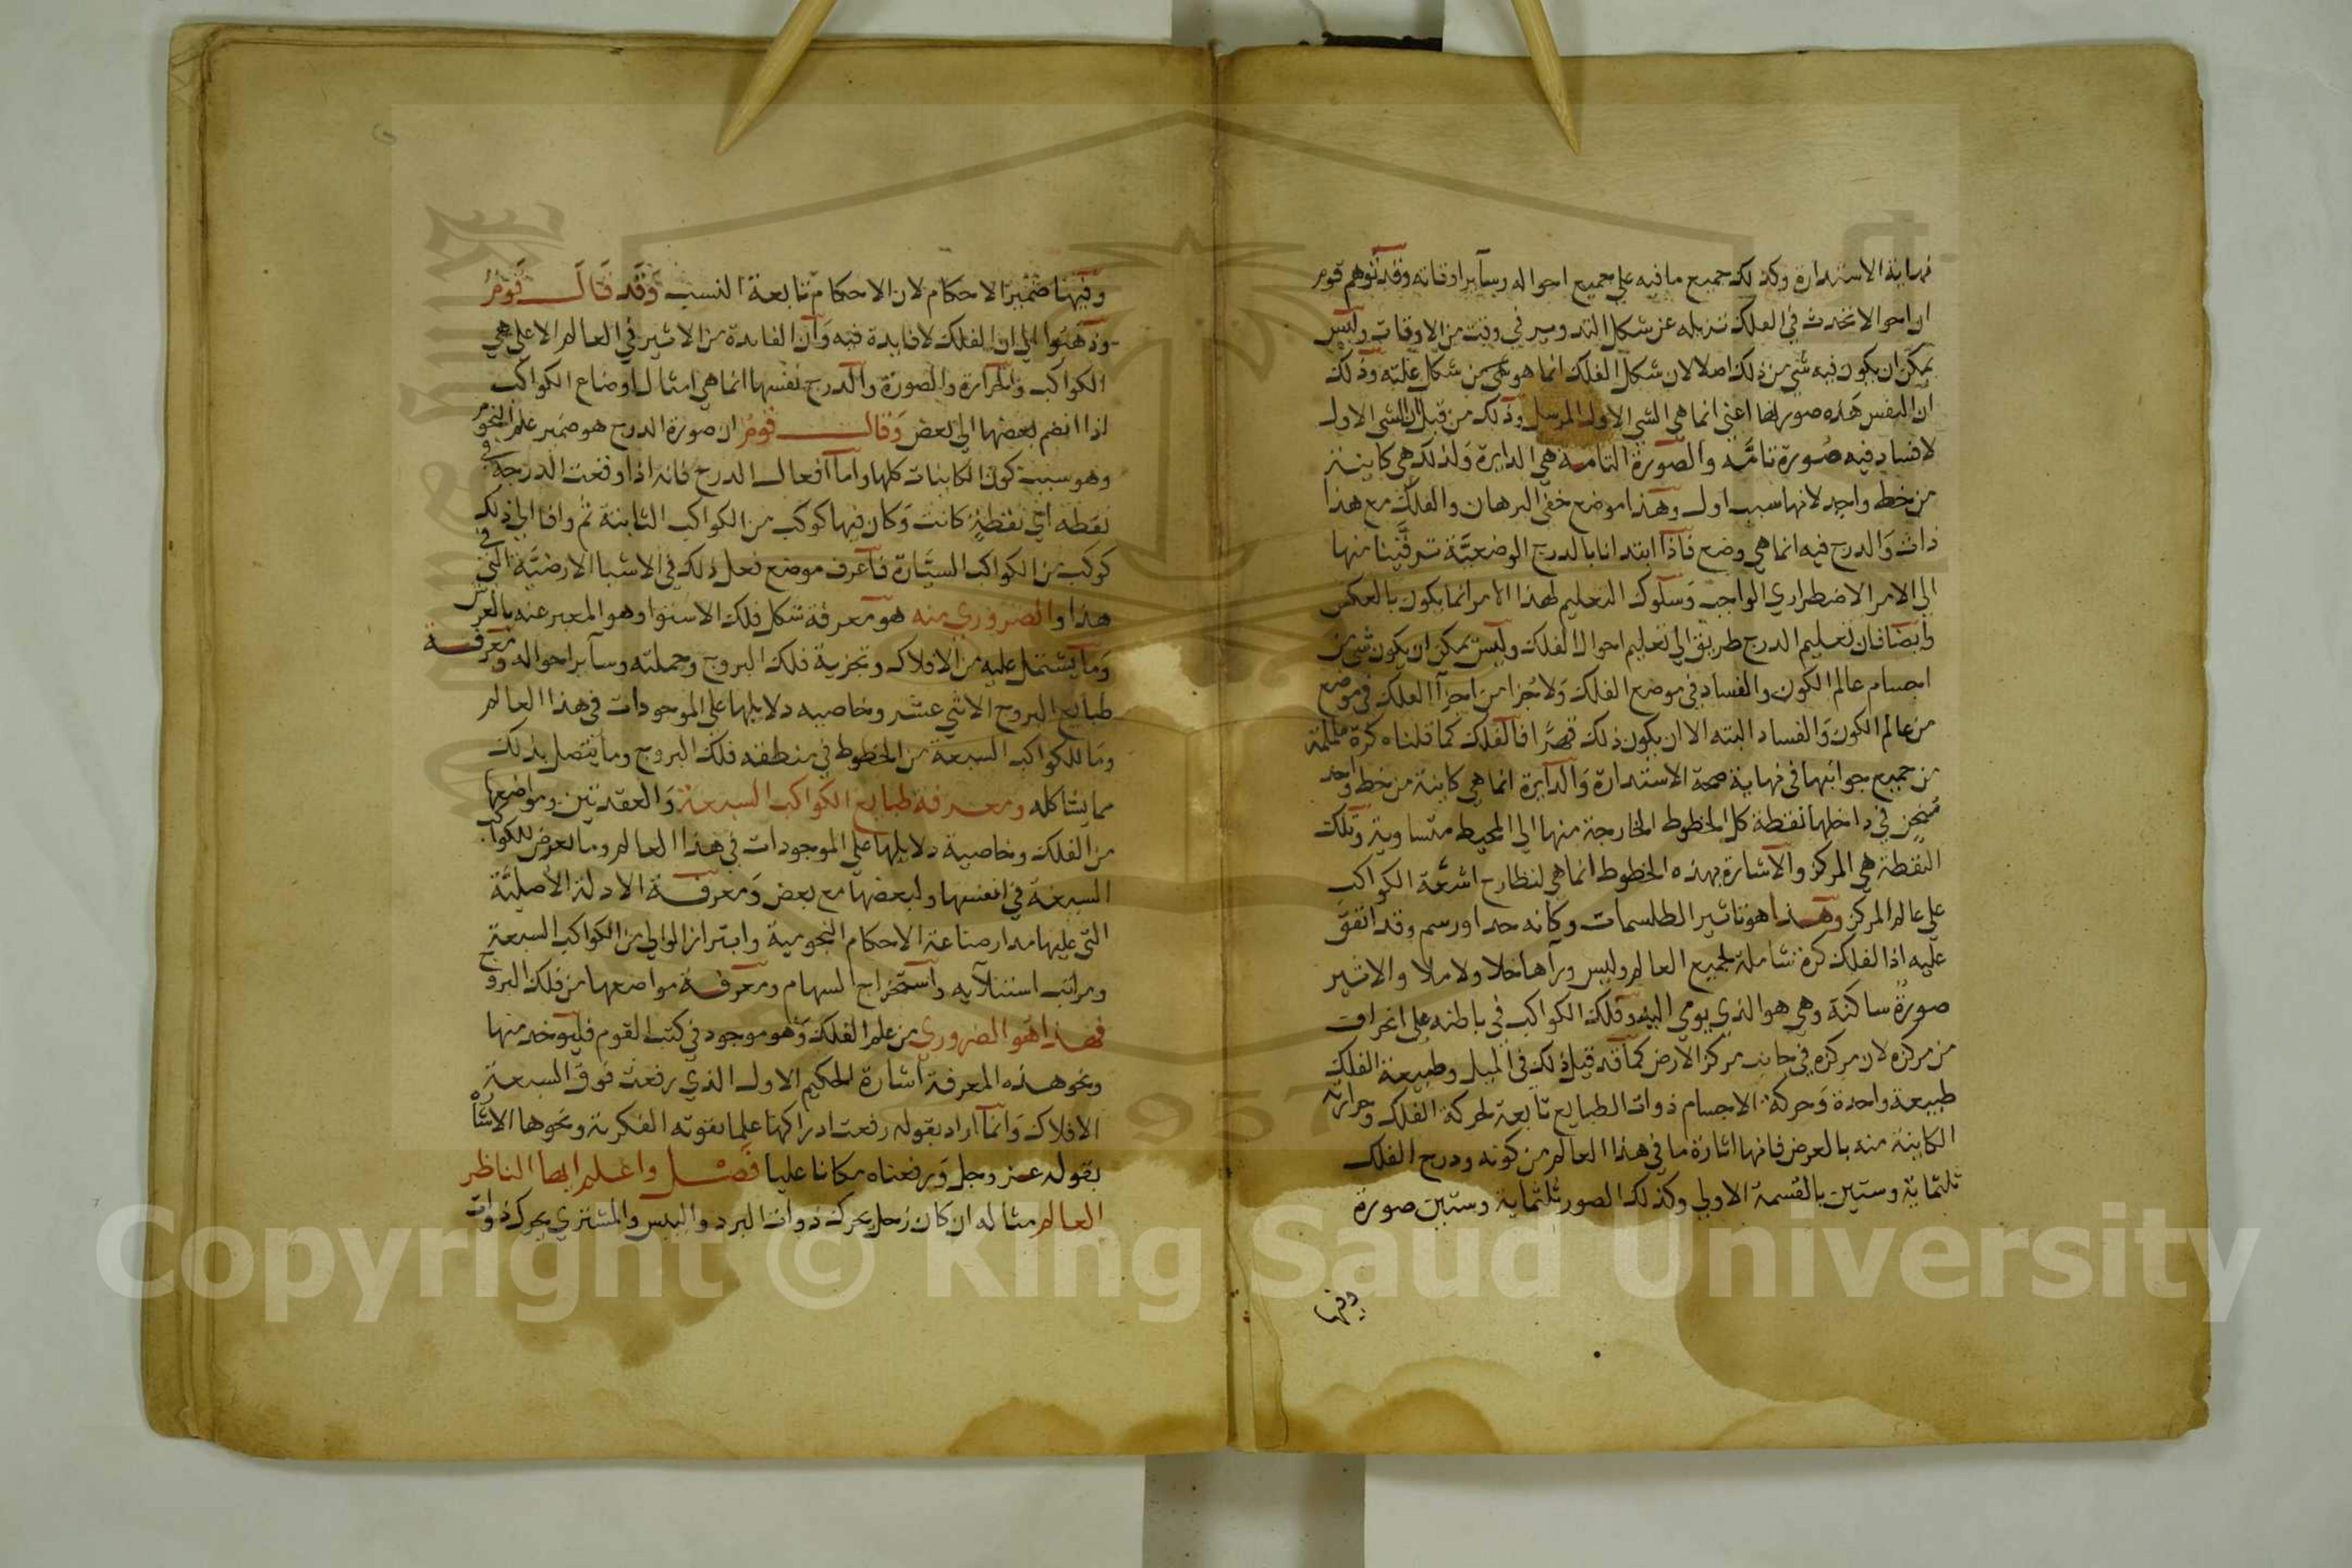 نهاية الاستدارة وكذلك جميع ما فيه على جميع احواله وسآير اوقاته وقد توهم قوم
ان احوالا تحدث في الفلك تزيله عن شكل التدوير في وقت من الاوقات وليس
يمكن ان يكون فيه شي من ذلك اصلا لان شكل الفلك انما هو شي من شكل علته وذلك
ان النفس هذه صورتها اعني انما هي الشي الاول المرسل وذلك من قبل ان الشي الاول
لا فساد فيه صورة تامة والصورة التامة هي الدايرة ولذلك هي كاينة
من خط واحد لانها سبب اول وهذا موضع خفي البرهان والفلك مع هذا
ذات والدرج فيه انما هي وضع فاذا ابتدانا بالدرج الوضعية ترقينا منها
الي الامر الاضطراري الواجب وسلوك التعليم لهذا الامر انما يكون بالعكس
وايضا فان تعليم الدرج طريق الي تعليم احوال الفلك وليس يمكن ان يكون شي من
اجسام عالم الكون والفساد في موضع الفلك ولا جزا من اجزآ الفلك في موضع
من عالم الكون والفساد البتة الا ان يكون ذلك قهرا فالفلك كما قلناه كرة ململمة
من جميع جوانبها في نهاية صحة الاستدارة والدايرة انما هي كاينة من خط واحد
في داخلها نقطة كل الخطوط الخارجة منها الي المحيط متساوية وتلك
النقطة هي المركز والاشارة بهذه الخطوط انما هي لنظارح اشعة الكواكب
علي عالم المركز وهذا هو تاثير الطلسمات وكانه حد او رسم وقد اتفق
عليه اذ الفلك كرة شاملة لجميع العالم وليس ورآها خلا ولا ملا والاثير
صورة ساكنة وهي هو الذي يومي اليه وفلك الكواكب في باطنه علي انحراف
من مركزه لان مركزه في جانب مركز الارض كما قد قيل ذلك في الميل وطبيعة الفلك
طبيعة واحدة وحركة الاجسام ذوات الطبايع تابعة لحركة الفلك وحرارته
الكاينة منه بالعرض فانها اثارة ما في هذا العالم من كونه ودرج الفلك
ثلثماية وستين بالقسمة الاولي وكذلك الصور ثلثماية وستين صورة
وفيها
وفيها ضمير الاحكام لان الاحكام تابعة النسب وقد قال قوم
وذهبوا الي ان الفلك لا فايدة فيه وان الفايدة من الاثير في العالم الاعلي هي
الكواكب والحرارة والصورة والدرج نفسها انما هي امثال اوضاع الكواكب
اذا انضم بعضها الي بعض وقال قوم ان صورة الدرج هو ضمير علم النجوم
وهو سبب كون الكاينات كلها واما افعال الدرج فانه اذا وقعت الدرجة في
نقطه اي نقطة كانت وكان فيها كوكب من الكواكب الثابتة ثم وافا الي ذلك
كوكب من الكواكب السيارة فاعرف موضع فعل ذلك في الاشيا الارضية التي في
هذا والضروري منه هو معرفة شكل فلك الاستوا وهو المعبر عنه بالعرش
وما يشتمل عليه من الافلاك وتجزية فلك البروج وجملته وسآير احواله ومعرفة
طبايع البروج الاثني عشر وخاصيه دلايلها علي الموجودات في هذا العالم
وما للكواكب السبعة من الخطوط في منطقه فلك البروج وما يتصل بذلك
مما يشاكله ومعرفة طبايع الكواكب السبعة والعقدتين ومواضعها
من الفلك وخاصية دلايلها علي الموجودات في هذا العالم وما لعرض للكواكب
السبعة في انفسها ولبعضها مع بعض ومعرفة الادلة الاصلية
التي عليها مدار صناعة الاحكام النجومية وابتزاز الوالي من الكواكب السبعة
ومراتب استيلآيه واستخراج السهام ومعرفة مواضعها من فلك البروج
فهذا هو الضروري من علم الفلك وهو موجود في كتب القوم فليوخد منها
ونحو هذه المعرفة اشارة الحكيم الاول الذي رفعت فوق السبعة
الافلاك وانما اراد بقوله رفعت ادراكها علما بقوته الفكرية ونحوها الاشارة
بقوله عز وجل ورفعناه مكانا عليا فصل واعلم ايها الناظر
العالم مثاله ان كان زحل يحرك ذوات البرد واليبس والمشتري يحرك ذوات
Copyright © King Saud University
1957